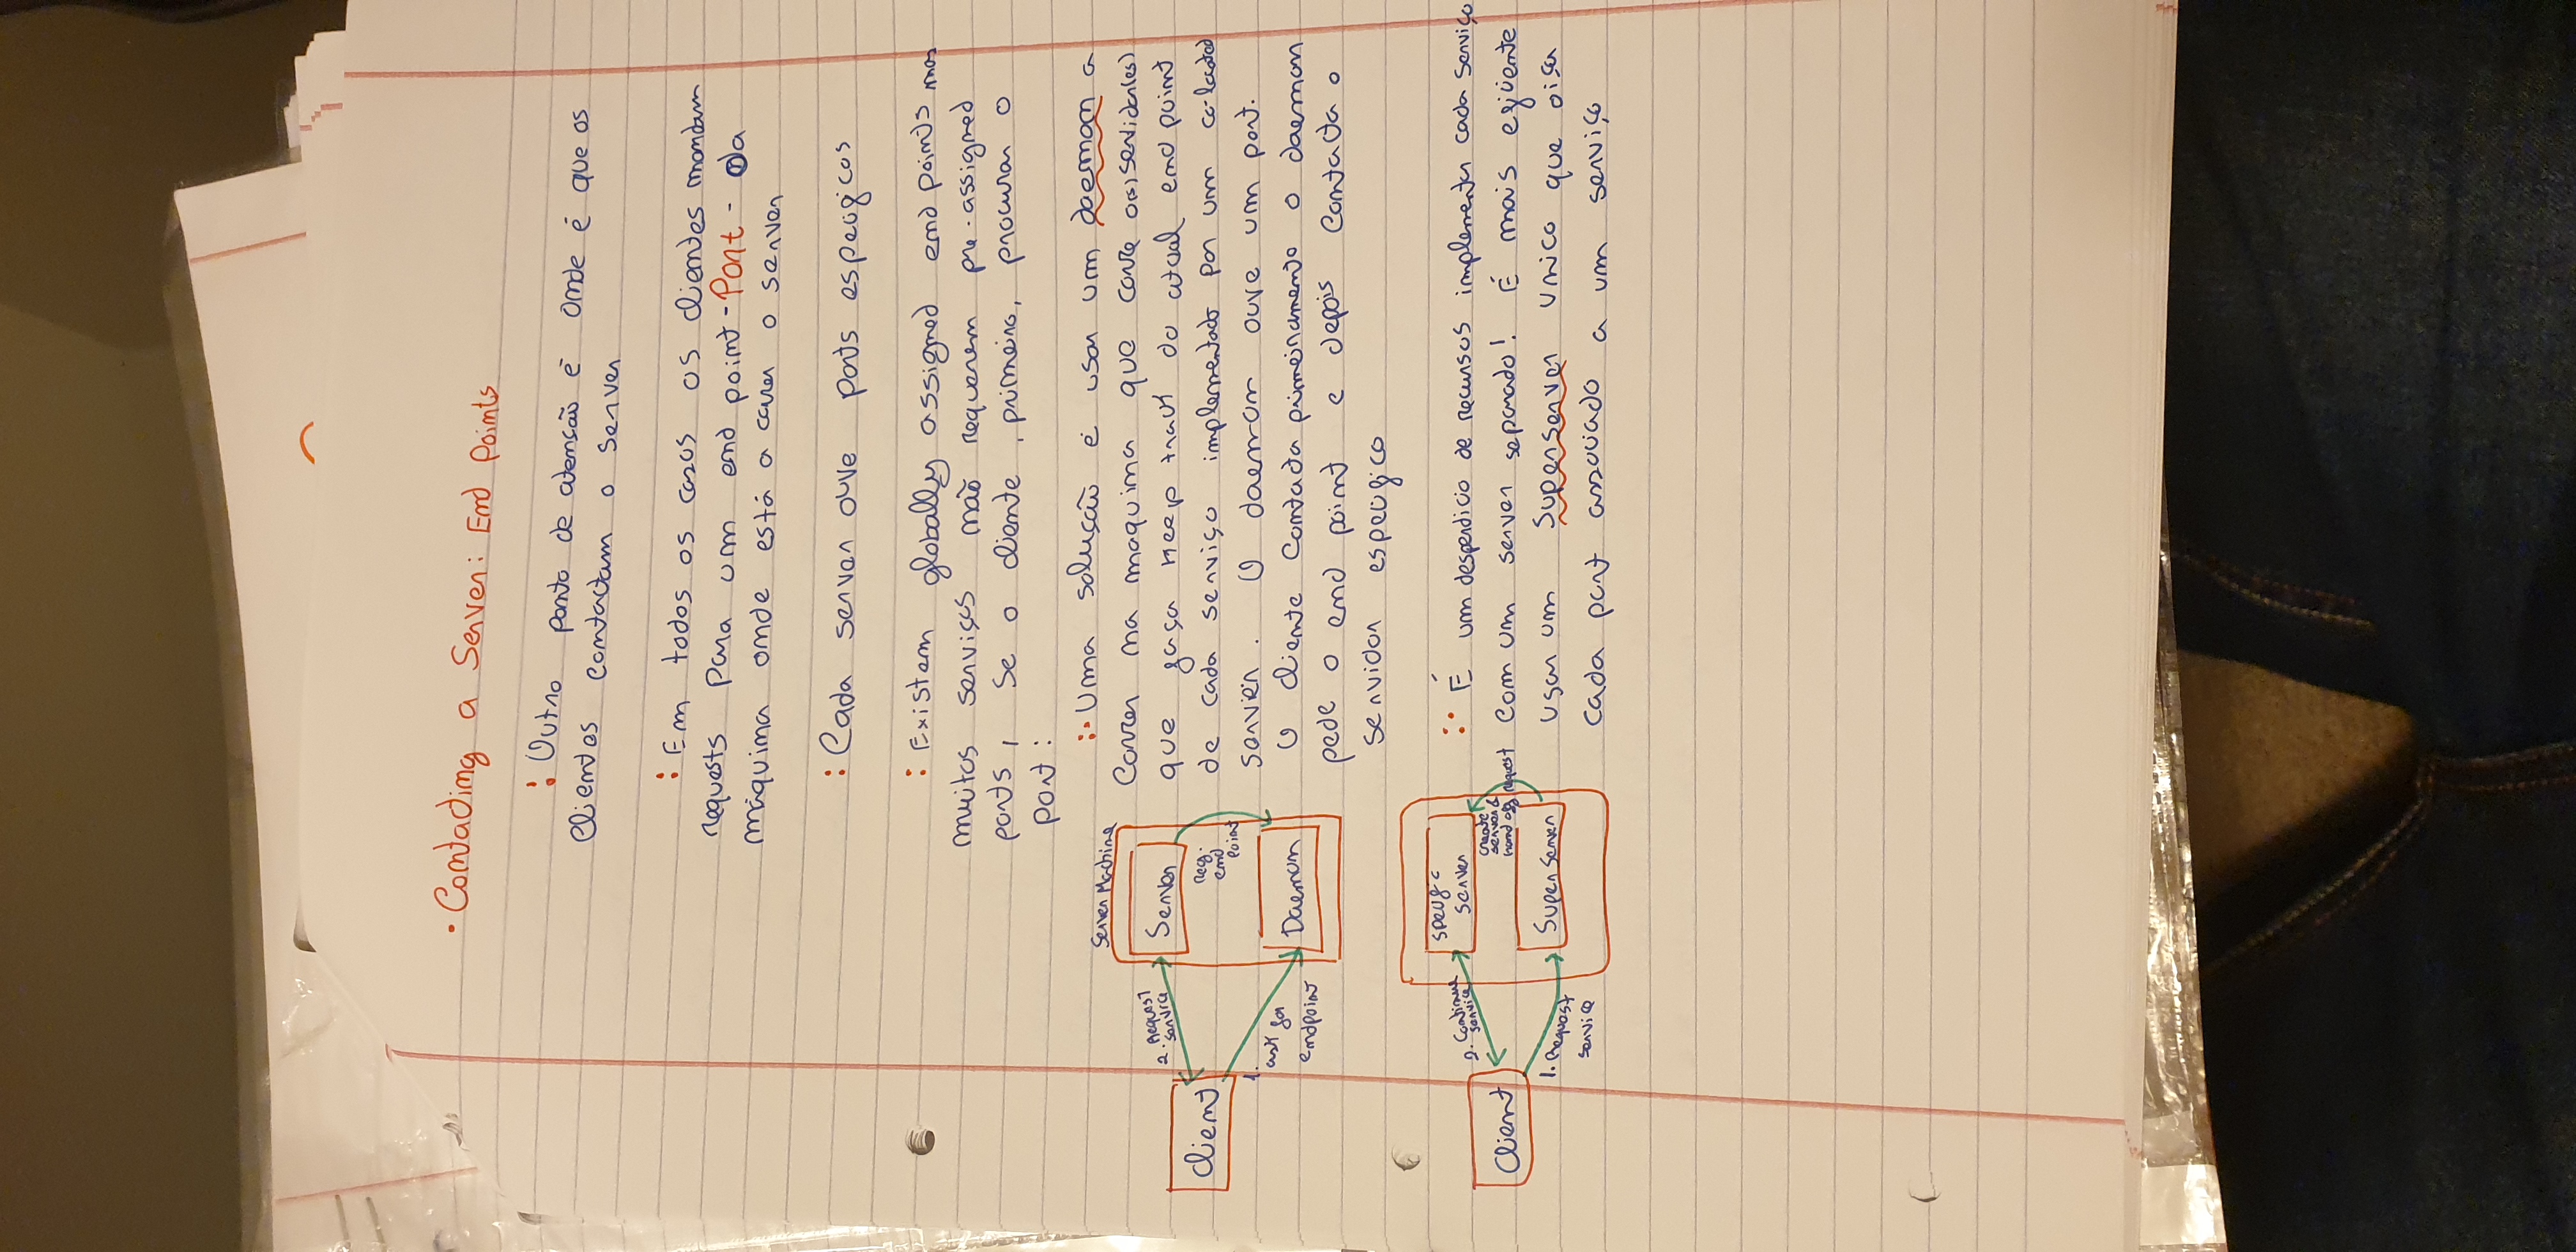 • Contacting a Server: End Points
: Outro ponto de atenção é onde é que os
Clientes contactam o server
: Em todos os casos os clientes mandam
requests para um end point - Port - da
máquina onde está a correr o server
: Cada server ouve ports especificos
: Existem globally assigned end points mas
muitos serviços não requerem pre-assigned
ports, Se o cliente, primeiro, procurar o
port:
:• Uma solução é usar um daemon a
Correr na maquina que corre o(s) servidor(es)
que faça keep track do atual end point
de cada serviço implementado por um co-located
servier. O daemon ouve um port.
O cliente Contacta primeiramento o daemon
pede o end point e depois contacta o
servidor especifico
Server Machine
Server
2. Request
service
Client
Reg.
end
point
1.
ask for
endpoint
Daemon
:• É um desperdicio de recursos implementar cada serviço
com um server separado! É mais eficiente
usar um Superserver unico que oiça
cada port associado a um serviço
Specific
server
2. Continue
service
Client
create
server &
hand off request
Super Server
1. Request
service